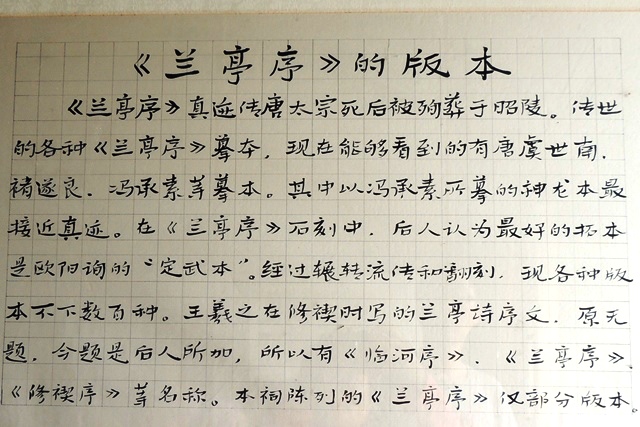 《兰亭序》的版本
《兰亭序》真迹传唐太宗死后被殉葬于昭陵。传世
的各种《兰亭序》摹本，现在能够看到的有唐虞世南，
褚遂良．冯承素等摹本。其中以冯承素所摹的神龙本最
接近真迹。在《兰亭序》石刻中．后人认为最好的拓本
是欧阳询的“定武本”。经过辗转流传和翻刻，现各种版
本不下数百种。王羲之在修禊时写的兰亭诗序文．原无
题，今题是后人所加，所以有《临河序》．《兰亭序》．
《修禊序》等名称。本祠陈列的《兰亭序》仅部分版本。